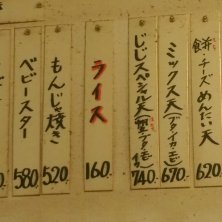 餅チーズめんたい天
620
ミックス天(ブタ、イカ、エビ)
670
じじスペシャル天
740.
ライス
160.
もんじゃ焼き
520.
ベビースター
580